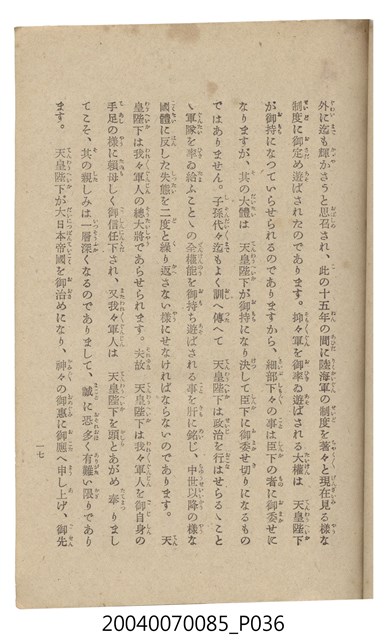 外に迄も輝かさうと思召され、此の十五年の間に陸海軍の制度を著々と現在見る樣な
制度に御定め遊ばされたのであります。抑々軍を御率ゐ遊ばされる大權は　天皇陛下
が御持になつていらせられるのでありますから、細部下々の事は臣下の者に御委せに
なりますが、其の大體は　天皇陛下が御持になり決して臣下に御委せ切りになるもの
ではありません。子孫代々迄もよく訓へ傳へて　天皇陛下は政治を行はせらるゝこと
ゝ軍隊を率ゐ給ふことゝの全權能を御持ち遊ばされる事を肝に銘じ、中世以降の樣な
國體に反した失態を二度と繰り返さない樣にせなければならないのであります。　天
皇陛下は我々軍人の總大將であらせられます。夫故　天皇陛下は我々軍人を御自身の
手足の樣に賴母しく御信任下され、又我々軍人は　天皇陛下を頭とあがめ奉りまし
てこそ、其の親しみは一層深くなるのでありまして、誠に恐多く有難い限りであり
ます。　天皇陛下が大日本帝國を御治めになり、神々の御惠に御應へ申し上げ、御先
一七
20040070085_P036